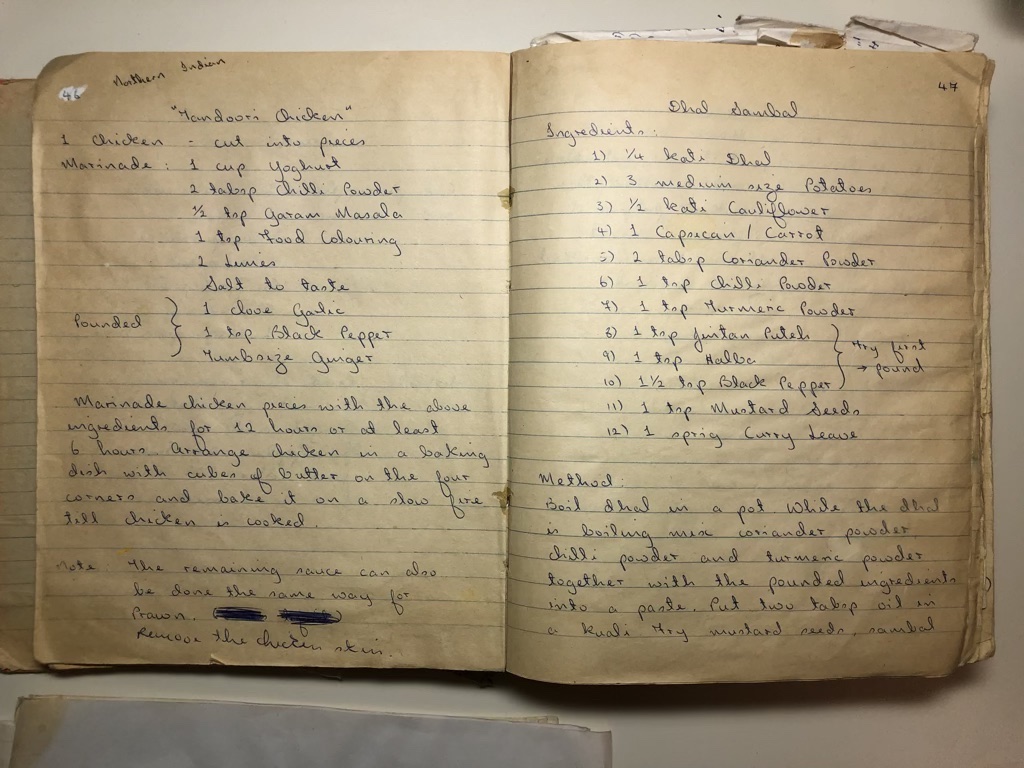 46
Northern Indian
"Tandoori Chicken"
1 Chicken - cut into pieces
Marinade : 1 cup Yoghurt
2 tabsp Chilli Powder
1/2 tsp Garam Masala
1 tsp Food Colouring
2 Limes
Salt to taste
1 clove Garlic
Pounded } 1 tsp Black Pepper
Tumbsize Ginger
Marinade chicken pieces with the above
ingredients for 12 hours or at least
6 hours. Arrange chicken in a baking
dish with cubes of butter on the four
corners and bake it on a slow fire
till chicken is cooked.
Note : The remaining sauce can also
be done the same way for
Prawn.
Remove the chicken skin.
47
Dhal Sambal
Ingredients :
1) 1/4 kati Dhal
2) 3 medium size Potatoes
3) 1/2 kati Cauliflower
4) 1 Capsican / Carrot
5) 2 tabsp Coriander Powder
6) 1 tsp Chilli Powder
7) 1 tsp Turmeric Powder
8) 1 tsp Jintan Puteh
9) 1 tsp Halba } Fry first
10) 1 1/2 tsp Black Pepper → pound
11) 1 tsp Mustard Seeds
12) 1 sprig Curry Leave
Method :
Boil dhal in a pot. While the dhal
is boiling mix coriander powder,
chilli powder and turmeric powder
together with the pounded ingredients
into a paste. Put two tabsp oil in
a kuali. Fry mustard seeds, sambal